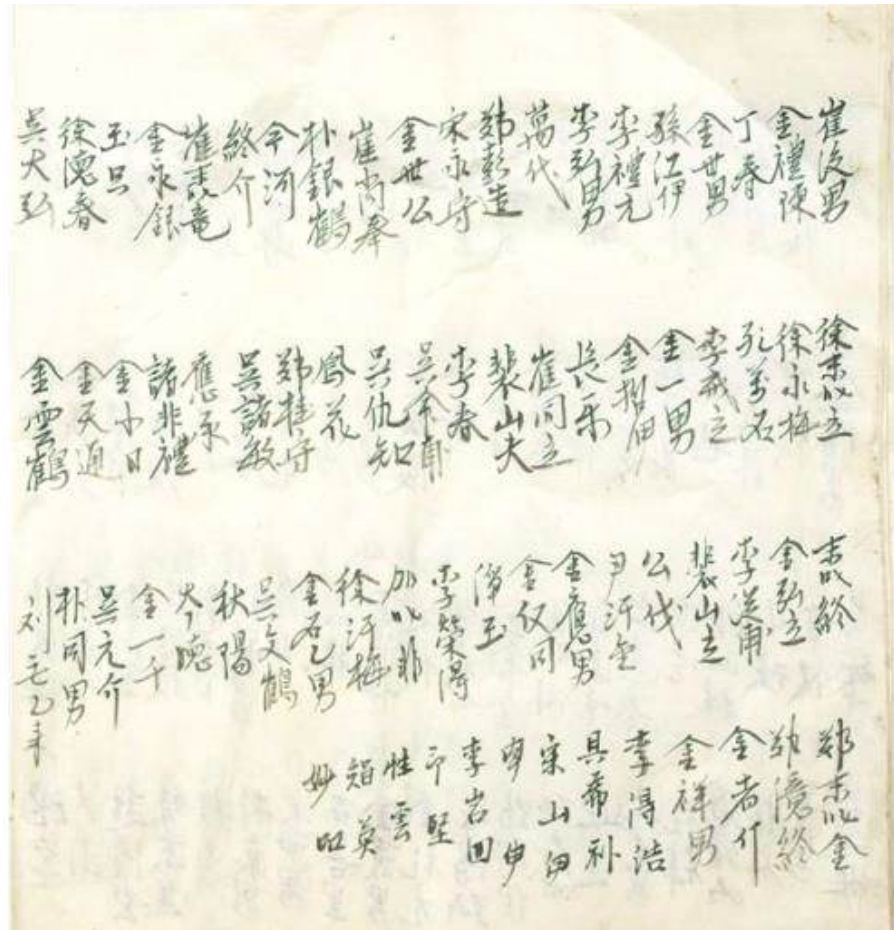 崔後男
金禮陳
丁春
金世男
孫江伊
李禮元
李弘男
萬代
鄭彭造
宋永守
金世公
崔尚奉
朴銀鶴
今河
終介
崔表竜
金永銀
玉只
徐德春
吳大弘
徐末叱立
徐永梅
孔萬石
李戒立
金一男
金哲伊
長乐
崔同立
裴山夫
李春
吳命甫
吳仇知
鳳花
鄭桂守
吳諸敏
應承
諸非禮
金小日
金天迪
金雲鶴
末叱終
金弘立
李送甫
裴山走
公代
尹汗金
金應男
金仅同
淨玉
李榮得
加叱非
徐汗梅
金石乙男
吳文鶴
秋陽
岑德
金一千
吳元介
朴同男
鄭末叱金
鄭億終
金者斤
金祥男
李得浩
具希补
宋山伊
申
李岩回
印堅
性雲
智英
妙昭